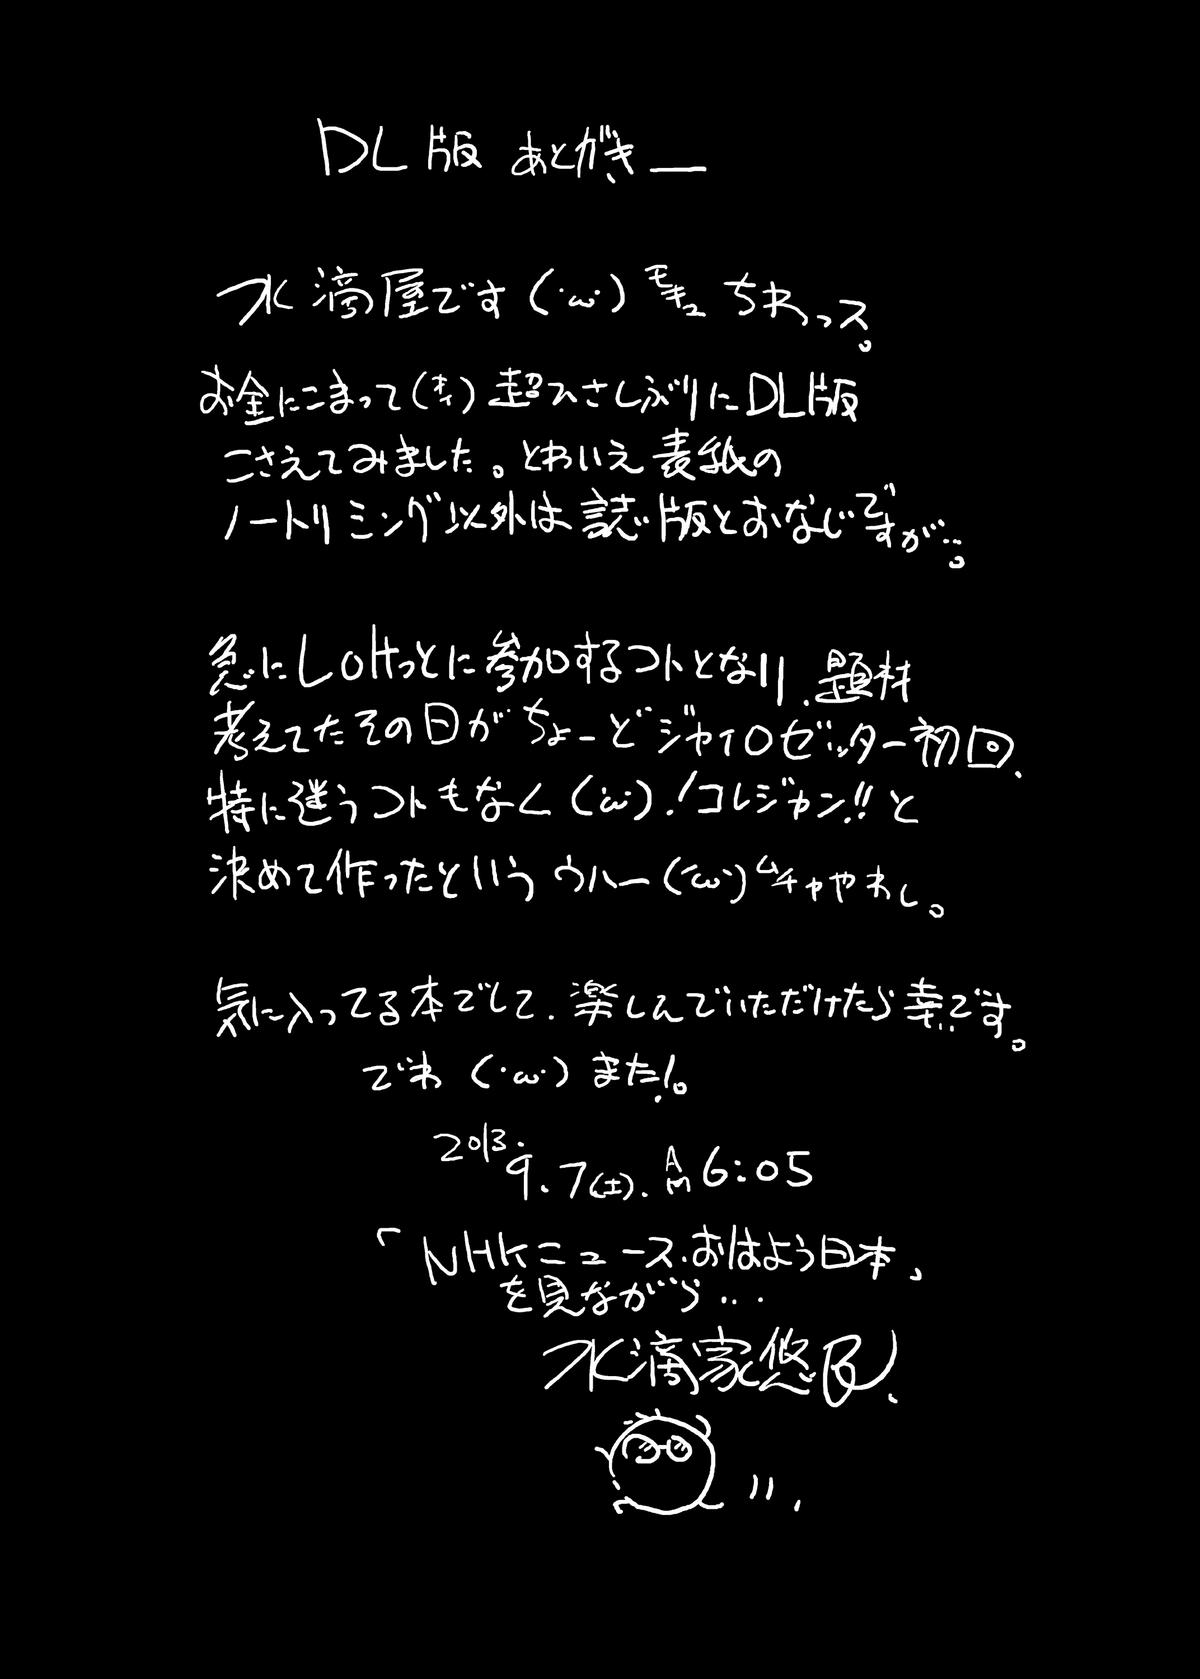 DL版 あとがき―
水滴屋です(・ω・)モキュ ちわっス。
お金にこまって(オイ) 超ひさしぶりにDL版
こさえてみました。とわいえ表紙の
ノートリミング以外は誌版とおなじですが…。
急にLoHっとに参加するコトとなり、題材
考えてたその日がちょーどジャイロゼッター初回、
特に迷うコトもなく(・ω・)!コレジャン!!と
決めて作ったというウハー(・ω・)ムチャやわし。
気に入ってる本でして、楽しんでいただけたら幸いです。
でわ(・ω・)また!。
2013.9.7(土).AM6:05
「NHKニュース、おはよう日本」
を見ながら…
水滴家悠